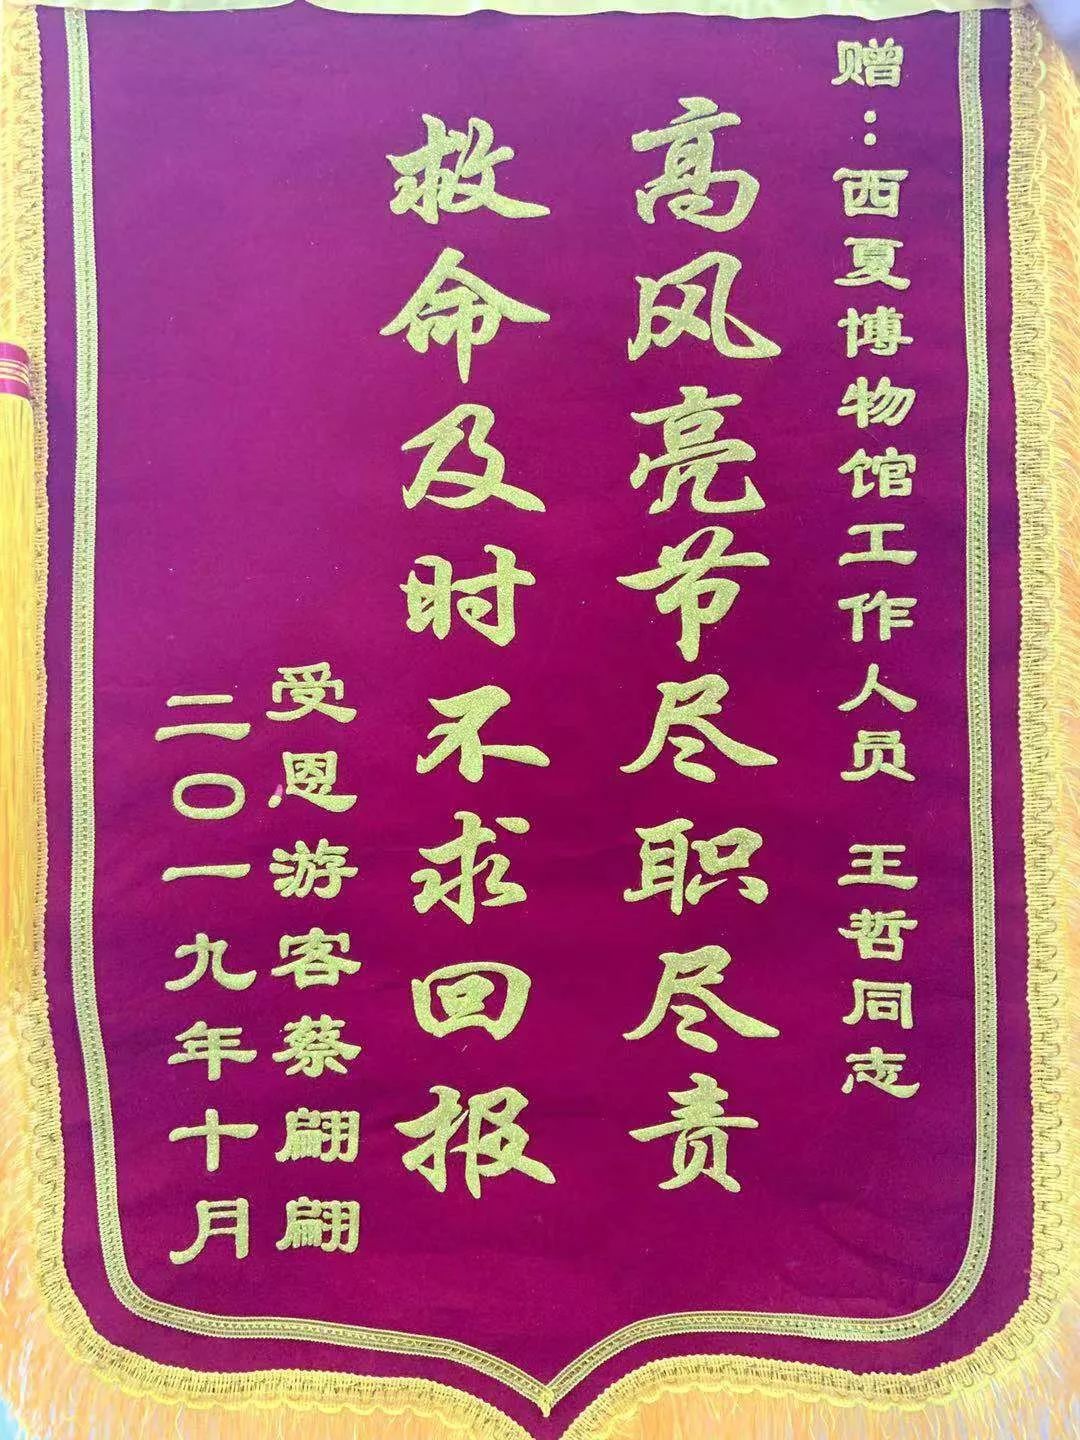 赠：西夏博物馆工作人员 王哲同志
高风亮节尽职尽责
救命及时不求回报
受恩游客蔡翩翩
二〇一九年十月